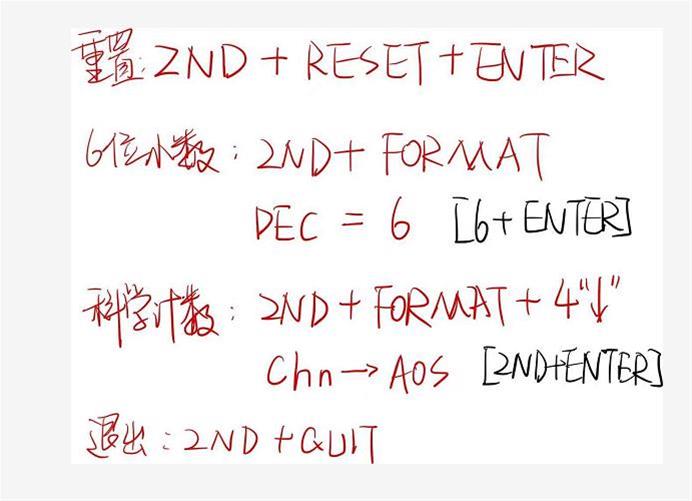 重置: 2ND + RESET + ENTER
6位小数: 2ND + FORMAT
DEC = 6 [6+ENTER]
科学计数: 2ND + FORMAT + 4"↓"
Chn → AOS [2ND+ENTER]
退出: 2ND + QUIT